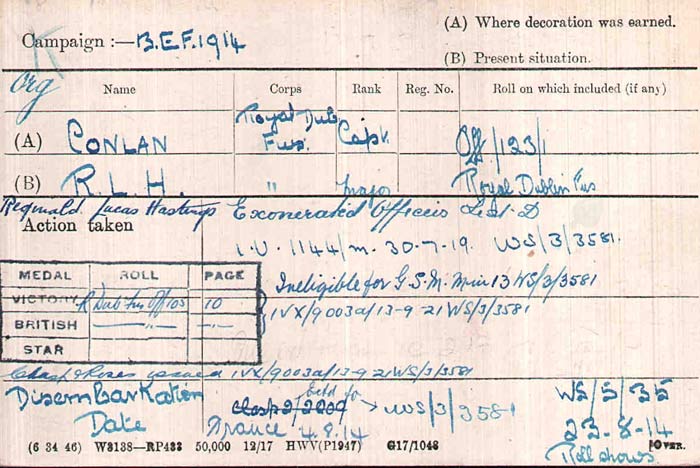 (A) Where decoration was earned.
Campaign :— B.E.F. 1914
(B) Present situation.
org
Name Corps Rank Reg. No. Roll on which included (if any)
(A) CONLAN Royal Dub. Fus. Capt. Off/123/1
(B) R. L. H. " Major Royal Dublin Fus
Reginald Lucas Hastings Exonerated Officers List D
Action taken
I.V. 1144/M. 30-7-19. WS/3/3581.
MEDAL ROLL PAGE
Ineligible for G.S.M. Min 13 WS/3/3581
VICTORY R Dub Fus Off 105 10
IVX/9003a/13-9-21 WS/3/3581
BRITISH —"— —"—
STAR
Clasp & Roses issued IVX/9003a/13-9-21 WS/3/3581
Disembarkation
Date
WS/3/3581
WS/5/35
France 4.9.14
23-8-14
(6 34 46) W3138—RP433 50,000 12/17 HWV(P1947) G17/1048 OVER.
Roll shows